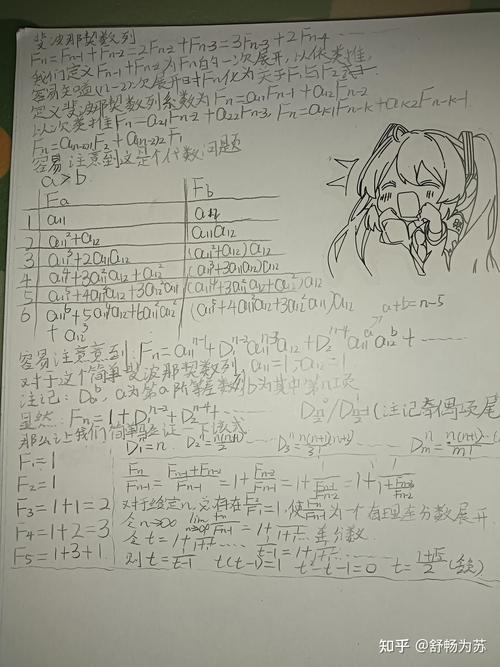 斐波那契数列
Fn=Fn-1+Fn-2=2Fn-2+Fn-3=3Fn-3+2Fn-4
我们定义Fn-1+Fn-2为Fn的一次展开,以依类推,
容易知道(n-2)次展开时Fn化为关于F1与F2
定义斐波那契数列系数为Fn=a11Fn-1+a12Fn-2
以此类推Fn=a21Fn-2+a22Fn-3, Fn=ak1Fn-k+ak2Fn-k-1
Fn=a(n-2)1F2+a(n-2)2F1
容易注意到这是个代数问题
a>b
Fa Fb
1 a11 a12
2 a11²+a12 a11a12
3 a11³+2a11a12 (a11²+a12)a12
4 a11⁴+3a11²a12+a12² (a11³+2a11a12)a12
5 a11⁵+4a11³a12+3a12²a11 (a11⁴+3a11²a12+a12²)a12
6 a11⁶+5a11⁴a12+6a11²a12² (a11⁵+4a11³a12+3a12²a11)a12
+a12³
a+b=n-5
容易注意到:Fn=a11^(n-1)+D1^(n-2)a11^(n-3)a12+D2^(n-4)a11^a a12^b+……
对于这个简单斐波那契数列,a11=1;a12=1
注记:Da^b, a为第a阶等差数列b为其中第n项
显然:Fn=1+D1^(n-2)+D2^(n-4)+……
(注记奇偶项尾
那么让我们简单验证一下该式
D1^n=n D2^n=n(n+1)/2! D3^n=n(n+1)(n+2)/3! Dm^n=n(n+1)…/m!
F1=1
F2=1
F3=1+1=2
F4=1+2=3
F5=1+3+1
Fn/Fn-1=(Fn-1+Fn-2)/Fn-1=1+Fn-2/Fn-1=1+1/(Fn-1/Fn-2)=1+1/(1+Fn-3/Fn-2)
对于给定n,必存在F2/F1=1,使Fn/Fn-1为一个有理连分数展开
令n→∞ lim n→∞ Fn/Fn-1=1+1/(1+1/(1+……连分数
令t=1+1/(1+1/(1+…… t-1=1/(1+1/(1+……
则t=1/(t-1) t(t-1)=1 t²-t-1=0 t=(1+√5)/2
知乎 @舒畅为苏